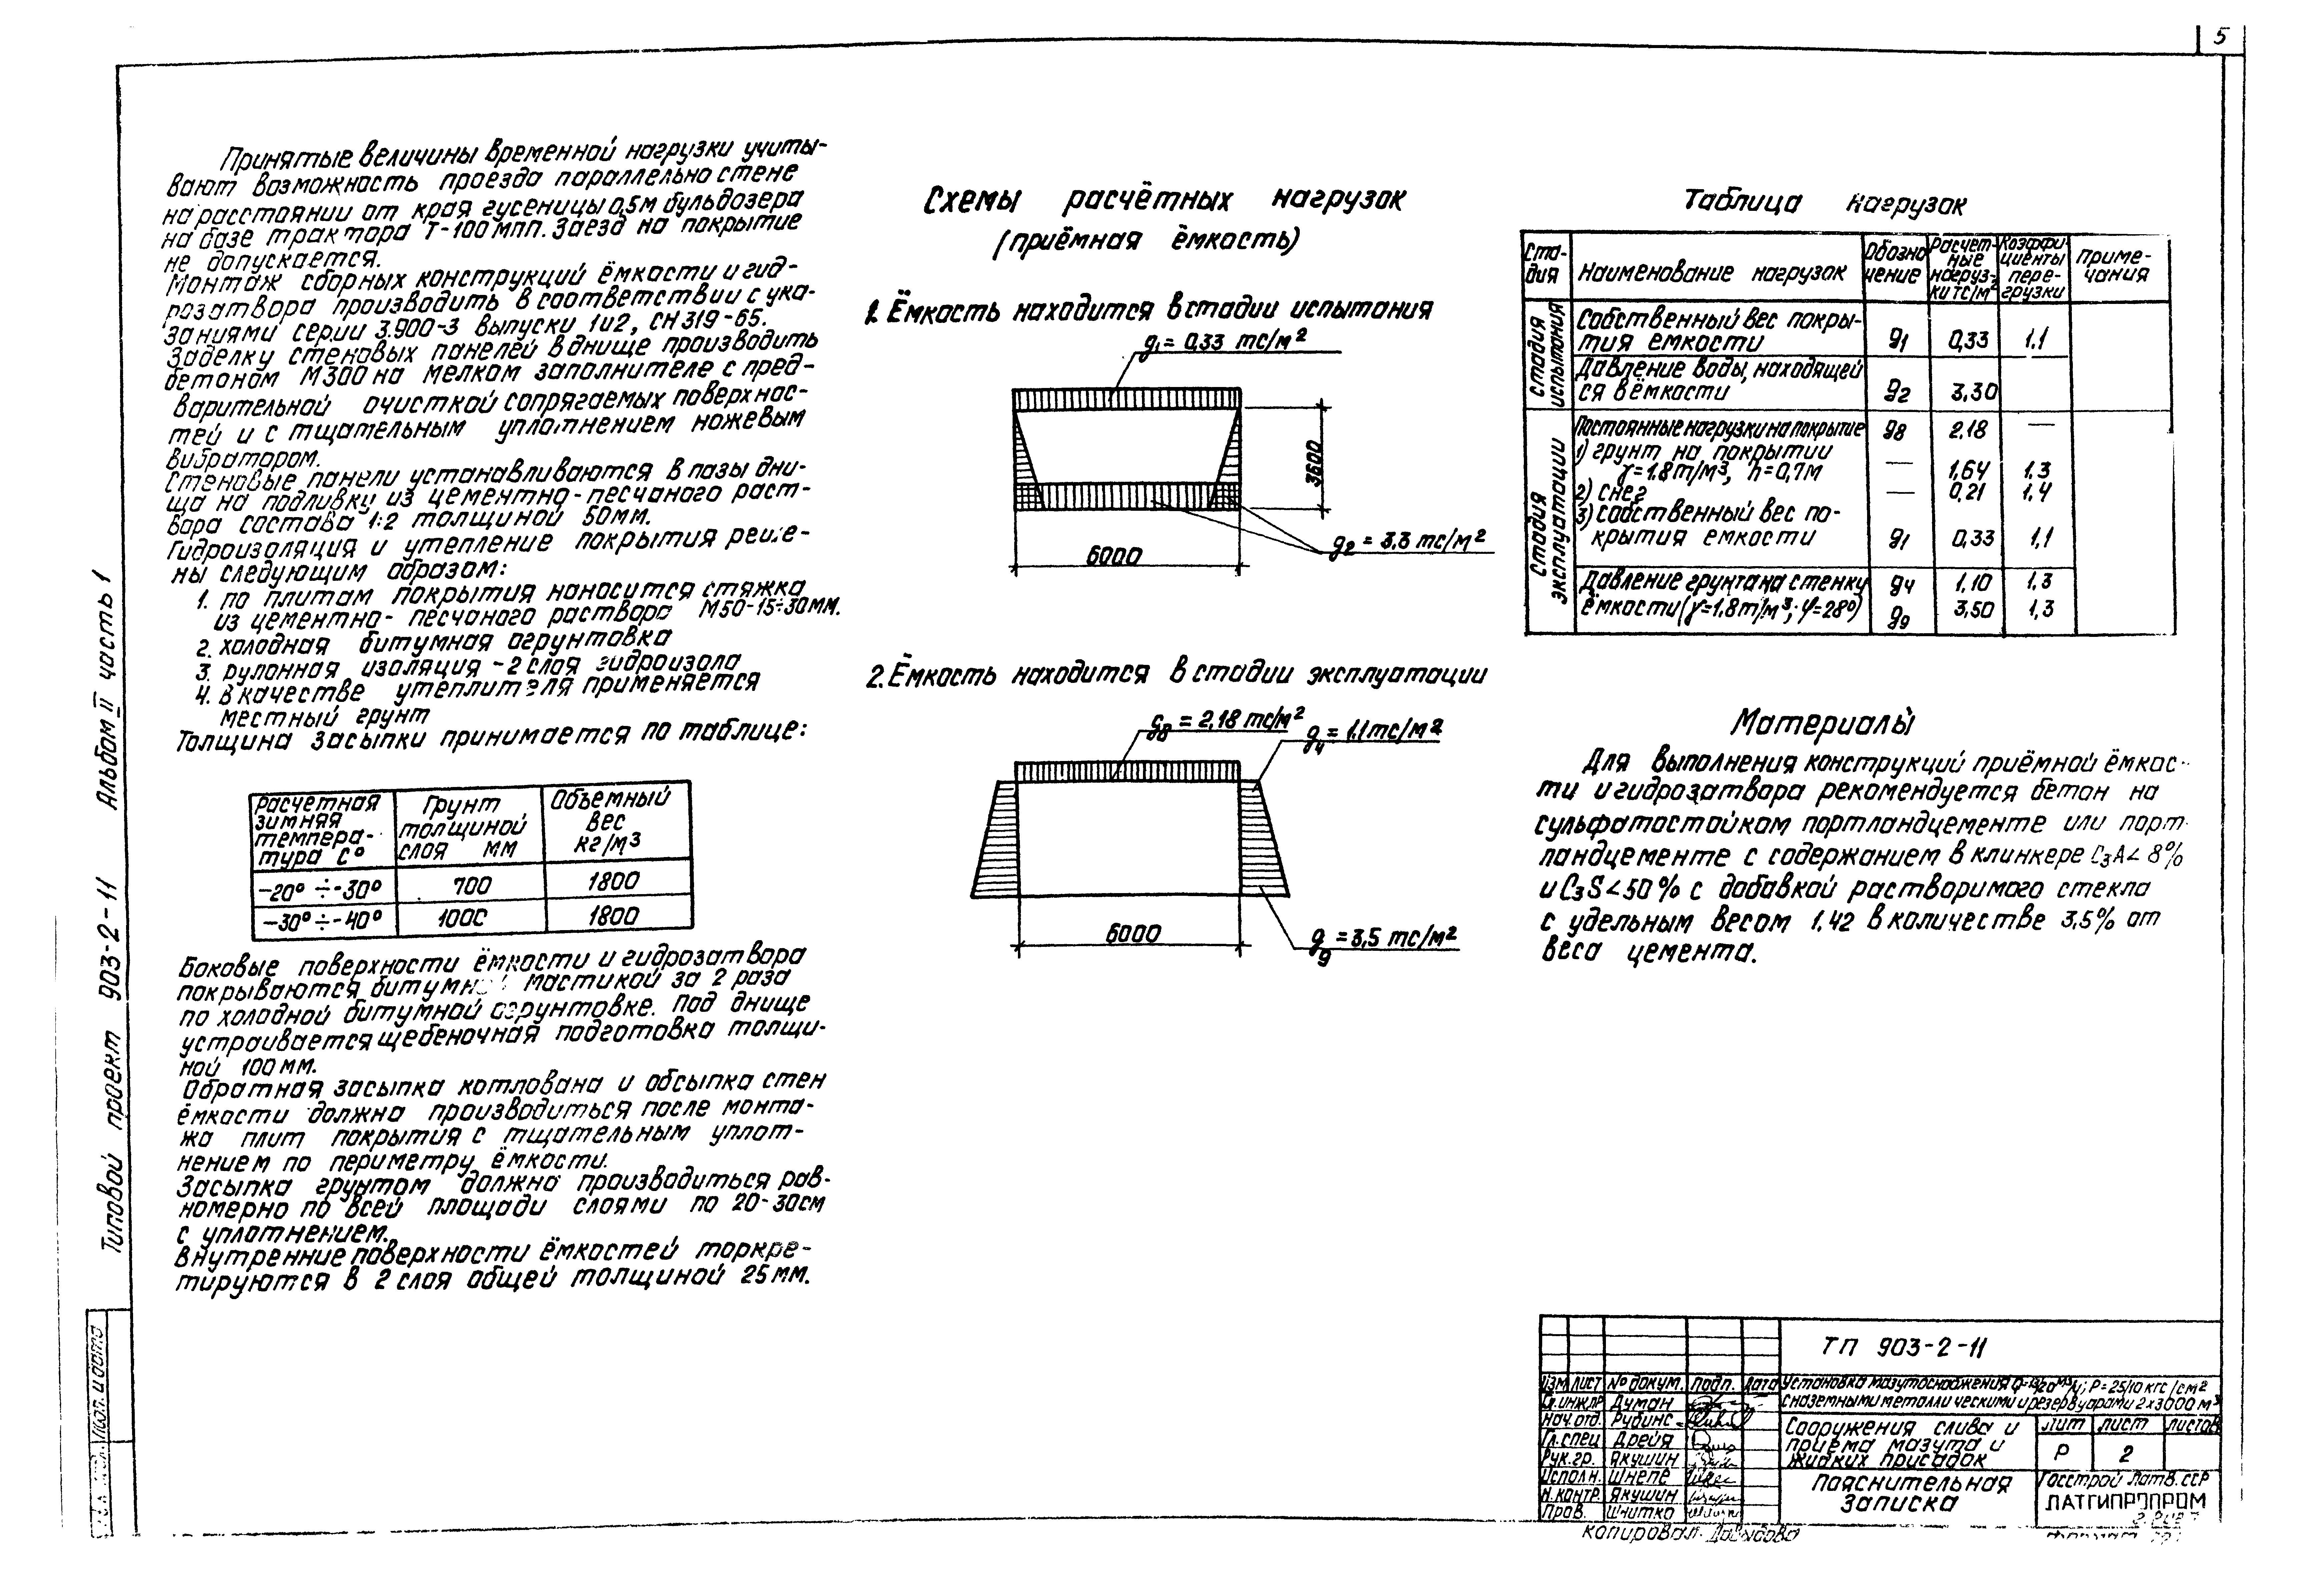 5
Принятые величины временной нагрузки учиты-
вают возможность проезда параллельно стене
на расстоянии от края гусеницы 0,5м бульдозера
на базе трактора Т-100МПП. Заезд на покрытие
не допускается.
Монтаж сборных конструкций ёмкости и гид-
розатвора производить в соответствии с ука-
заниями серии 3.900-3 выпуски 1и2, СН 319-65.
Заделку стеновых панелей в днище производить
бетоном М300 на мелком заполнителе с пред-
варительной очисткой сопрягаемых поверхнос-
тей и с тщательным уплотнением ножевым
вибратором.
Стеновые панели устанавливаются в пазы дни-
ща на подливку из цементно-песчаного раст-
вора состава 1:2 толщиной 50мм.
Гидроизоляция и утепление покрытия реше-
ны следующим образом:
1. по плитам покрытия наносится стяжка
из цементно-песчаного раствора М50-15÷30мм.
2. холодная битумная огрунтовка
3. рулонная изоляция - 2 слоя гидроизола
4. в качестве утеплителя применяется
местный грунт
Толщина засыпки принимается по таблице:
Расчетная зимняя темпера-тура С° Грунт толщиной слоя мм Объемный вес кг/м3
-20° ÷ -30° 700 1800
-30° ÷ -40° 1000 1800
Боковые поверхности ёмкости и гидрозатвора
покрываются битумной мастикой за 2 раза
по холодной битумной огрунтовке. Под днище
устраивается щебеночная подготовка толщи-
ной 100мм.
Обратная засыпка котлована и обсыпка стен
ёмкости должна производиться после монта-
жа плит покрытия с тщательным уплот-
нением по периметру ёмкости.
Засыпка грунтом должна производиться рав-
номерно по всей площади слоями по 20-30см
с уплотнением.
Внутренние поверхности ёмкостей торкре-
тируются в 2 слоя общей толщиной 25мм.
Схемы расчётных нагрузок
(приёмная ёмкость)
1. Ёмкость находится в стадии испытания
g1 = 0,33 тс/м2
3600
g2 = 3,3 тс/м2
6000
2. Ёмкость находится в стадии эксплуатации
g8 = 2,18 тс/м2
g4 = 1.1 тс/м2
6000
g9 = 3,5 тс/м2
Таблица нагрузок
Ста-дия Наименование нагрузок Обозна чение Расчет-ные нагруз-ки тс/м2 Коэффи-циенты пере-грузки Приме-чания
Стадия испытания
Собственный вес покры-
тия емкости g1 0,33 1.1
Давление воды, находящей
ся в ёмкости g2 3,30
Стадия эксплуатации
Постоянные нагрузки на покрытие g8 2.18 —
1) грунт на покрытии
γ=1.8т/м3, h=0,7м — 1,64 1.3
2) снег — 0,21 1,4
3) собственный вес по-
крытия емкости g1 0,33 1,1
Давление грунта на стенку g4 1,10 1,3
ёмкости (γ=1.8т/м3; φ=28°) g9 3,50 1,3
Материалы
Для выполнения конструкций приёмной ёмкос-
ти и гидрозатвора рекомендуется бетон на
сульфатостойком портландцементе или порт-
ландцементе с содержанием в клинкере С3А<8%
и С3S<50% с добавкой растворимого стекла
с удельным весом 1,42 в количестве 3,5% от
веса цемента.
Типовой проект 903-2-11 Альбом II часть 1
Подп. и дата
ТП 903-2-11
Изм. Лист № докум. Подп. Дата
Гл.инж.пр Думан
Нач. отд. Рубинс
Гл. спец Дрейя
Рук. гр. Якушин
Исполн. Шнепе
Н. контр. Якушин
Пров. Шнитко
сназемными металлическими резервуарами 2х3000м3
Сооружения слива и
приема мазута и
жидких присадок
Лит Лист Листов
Р 2
Пояснительная
записка
Госстрой Латв. ССР
ЛАТГИПРОПРОМ
Копировал: Давыдова